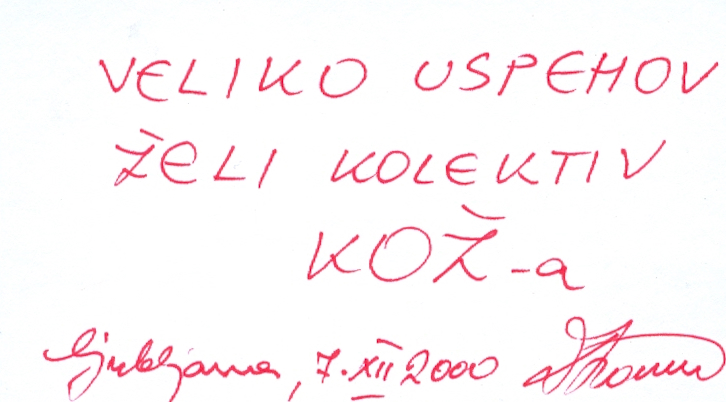 VELIKO USPEHOV
ŽELI KOLEKTIV
KOŽ-a
Ljubljana, 7.XII 2000